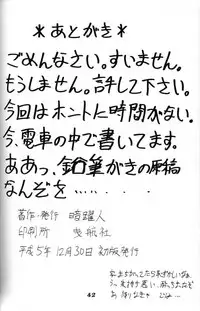 *あとがき*
ごめんなさい。すいません。
もうしません。許して下さい。
今回はホントに時間がない。
今、電車の中で書いてます。
ああっ、鉛筆がきの原稿
なんぞを・・・・・・
著作・発行 晴躍人
印刷所 曳航社
平成5年12月30日 初版発行
42